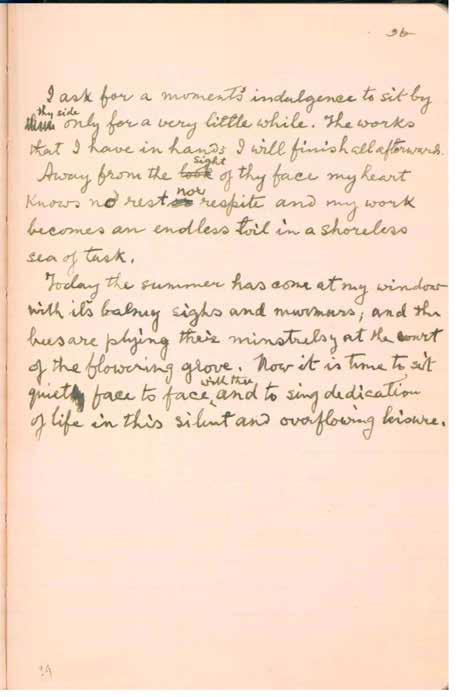 36
I ask for a moment's indulgence to sit by
thy side only for a very little while. The works
that I have in hands I will finish all afterwards.
Away from the look sight of thy face my heart
knows no rest or nor respite and my work
becomes an endless toil in a shoreless
sea of task.
Today the summer has come at my window
with its balmy sighs and murmurs; and the
bees are plying their minstrelsy at the court
of the flowering grove. Now it is time to sit
quiet face to face with thee, and to sing dedication
of life in this silent and overflowing leisure.